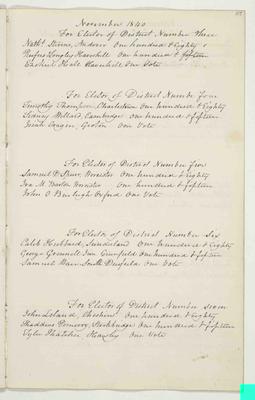 November 1840
For Elector of District Number three
Nathl Stevens, Andover One hundred & Eighty
Rufus Longley Haverhill One hundred & fifteen
Haverhill One Vote
For Elector of District Number four
Timothy Thompson, Charlestown One hundred & Eighty
Sidney Willard, Cambridge One hundred & fifteen
Groton One Vote
For Elector of District Number five
Samuel D. Spurr, Worcester One hundred & Eighty
Ira M. Barton Worcester One hundred & fifteen
John O Oxford One Vote
For Elector of District Number Six
Caleb Hubbard, Sunderland One hundred & Eighty
George Grennell Jun Greenfield One hundred & fifteen
Samuel South Deerfield One Vote
For Elector of District Number seven
John Leland, Cheshire One hundred & Eighty
Thaddeus Pomeroy, Stockbridge One hundred & fifteen
Tyler Thatcher Hawley One Vote